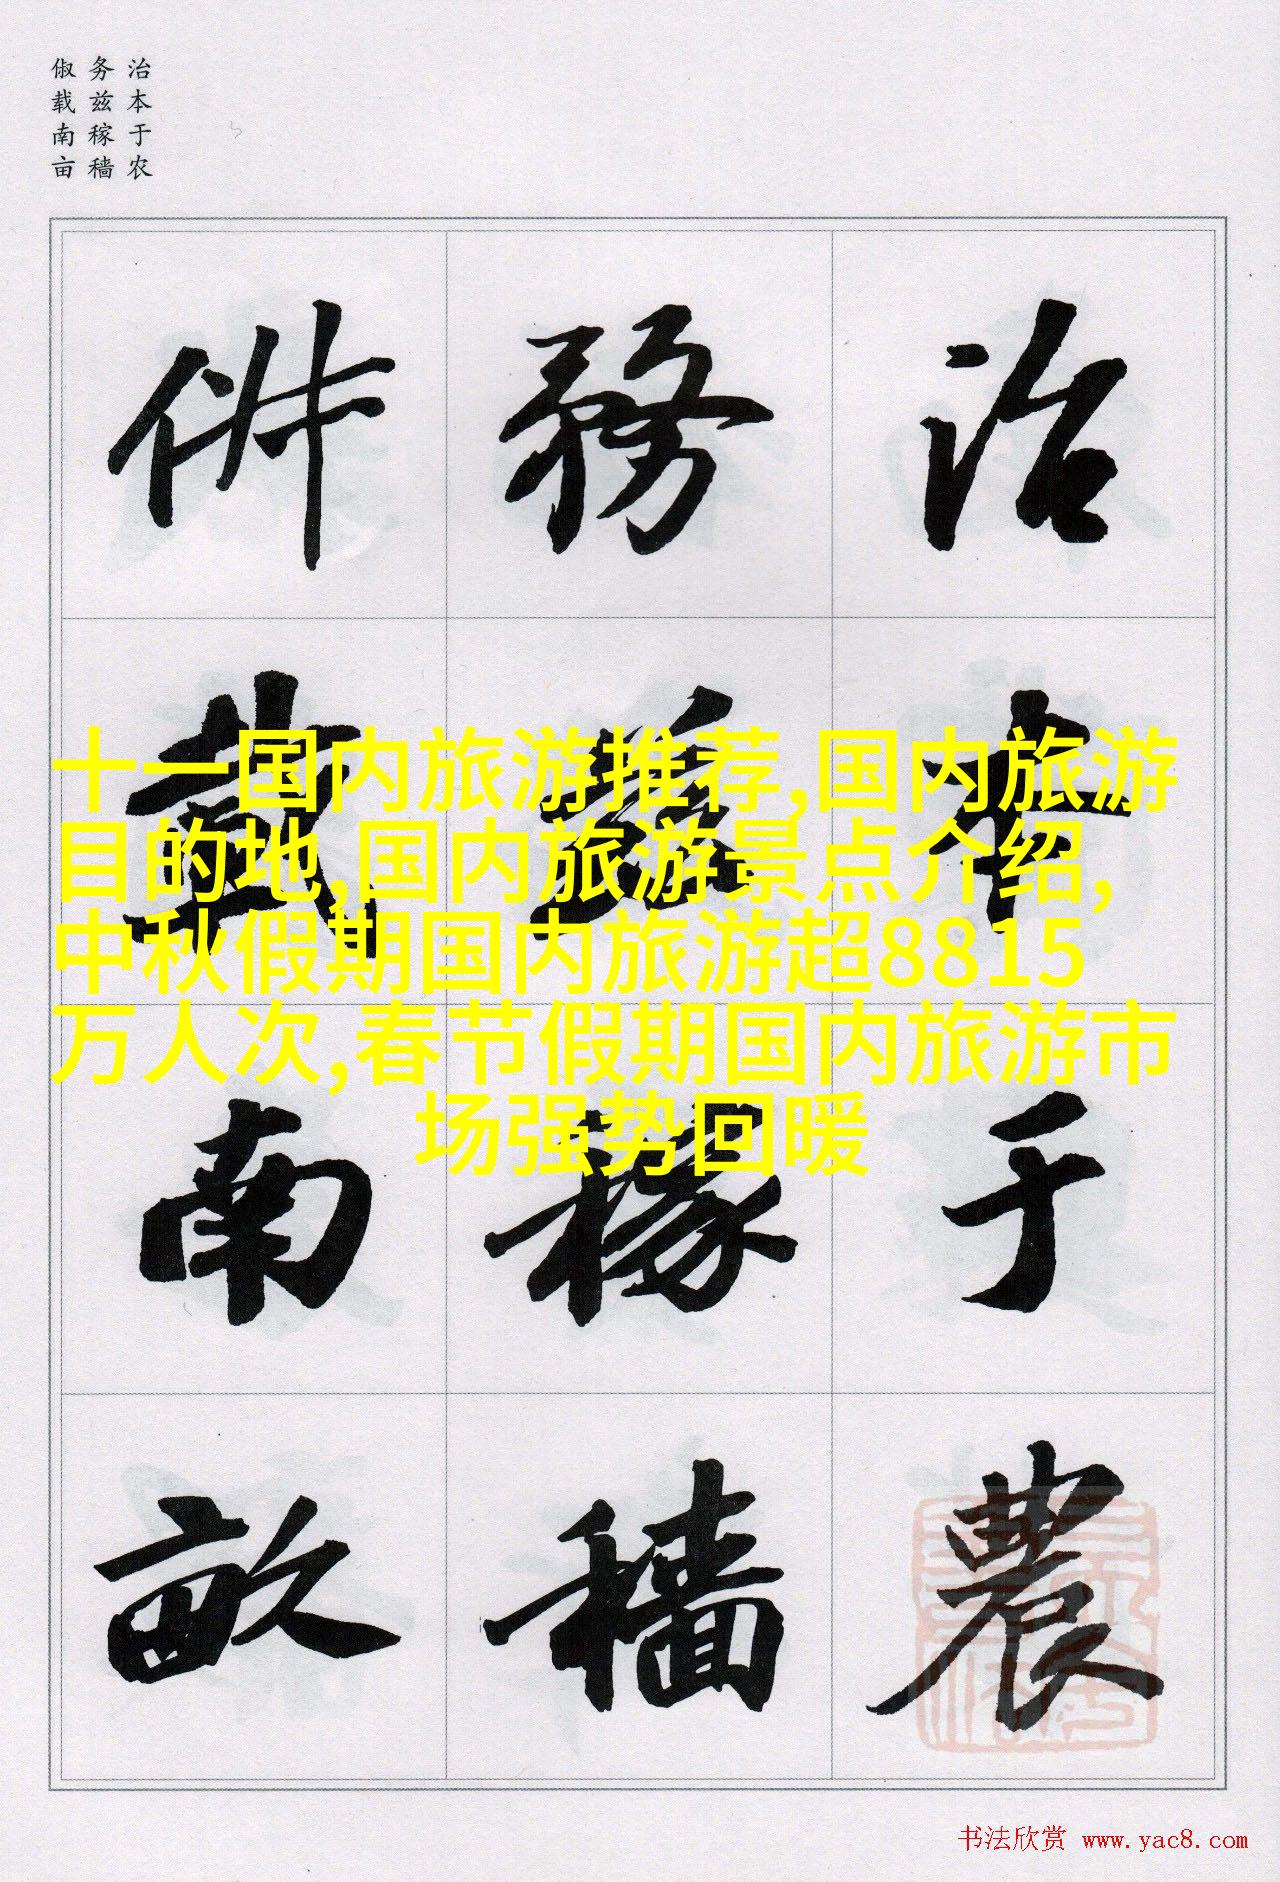 治本于农
务兹稼穑
俶载南亩
治本于農
務茲稼穡
俶載南畝
十一国内旅游推荐,国内旅游
目的地,国内旅游景点介绍,
中秋假期国内旅游超8815
万人次,春节假期国内旅游市
场强势回暖
书法欣赏 www.yac8.com